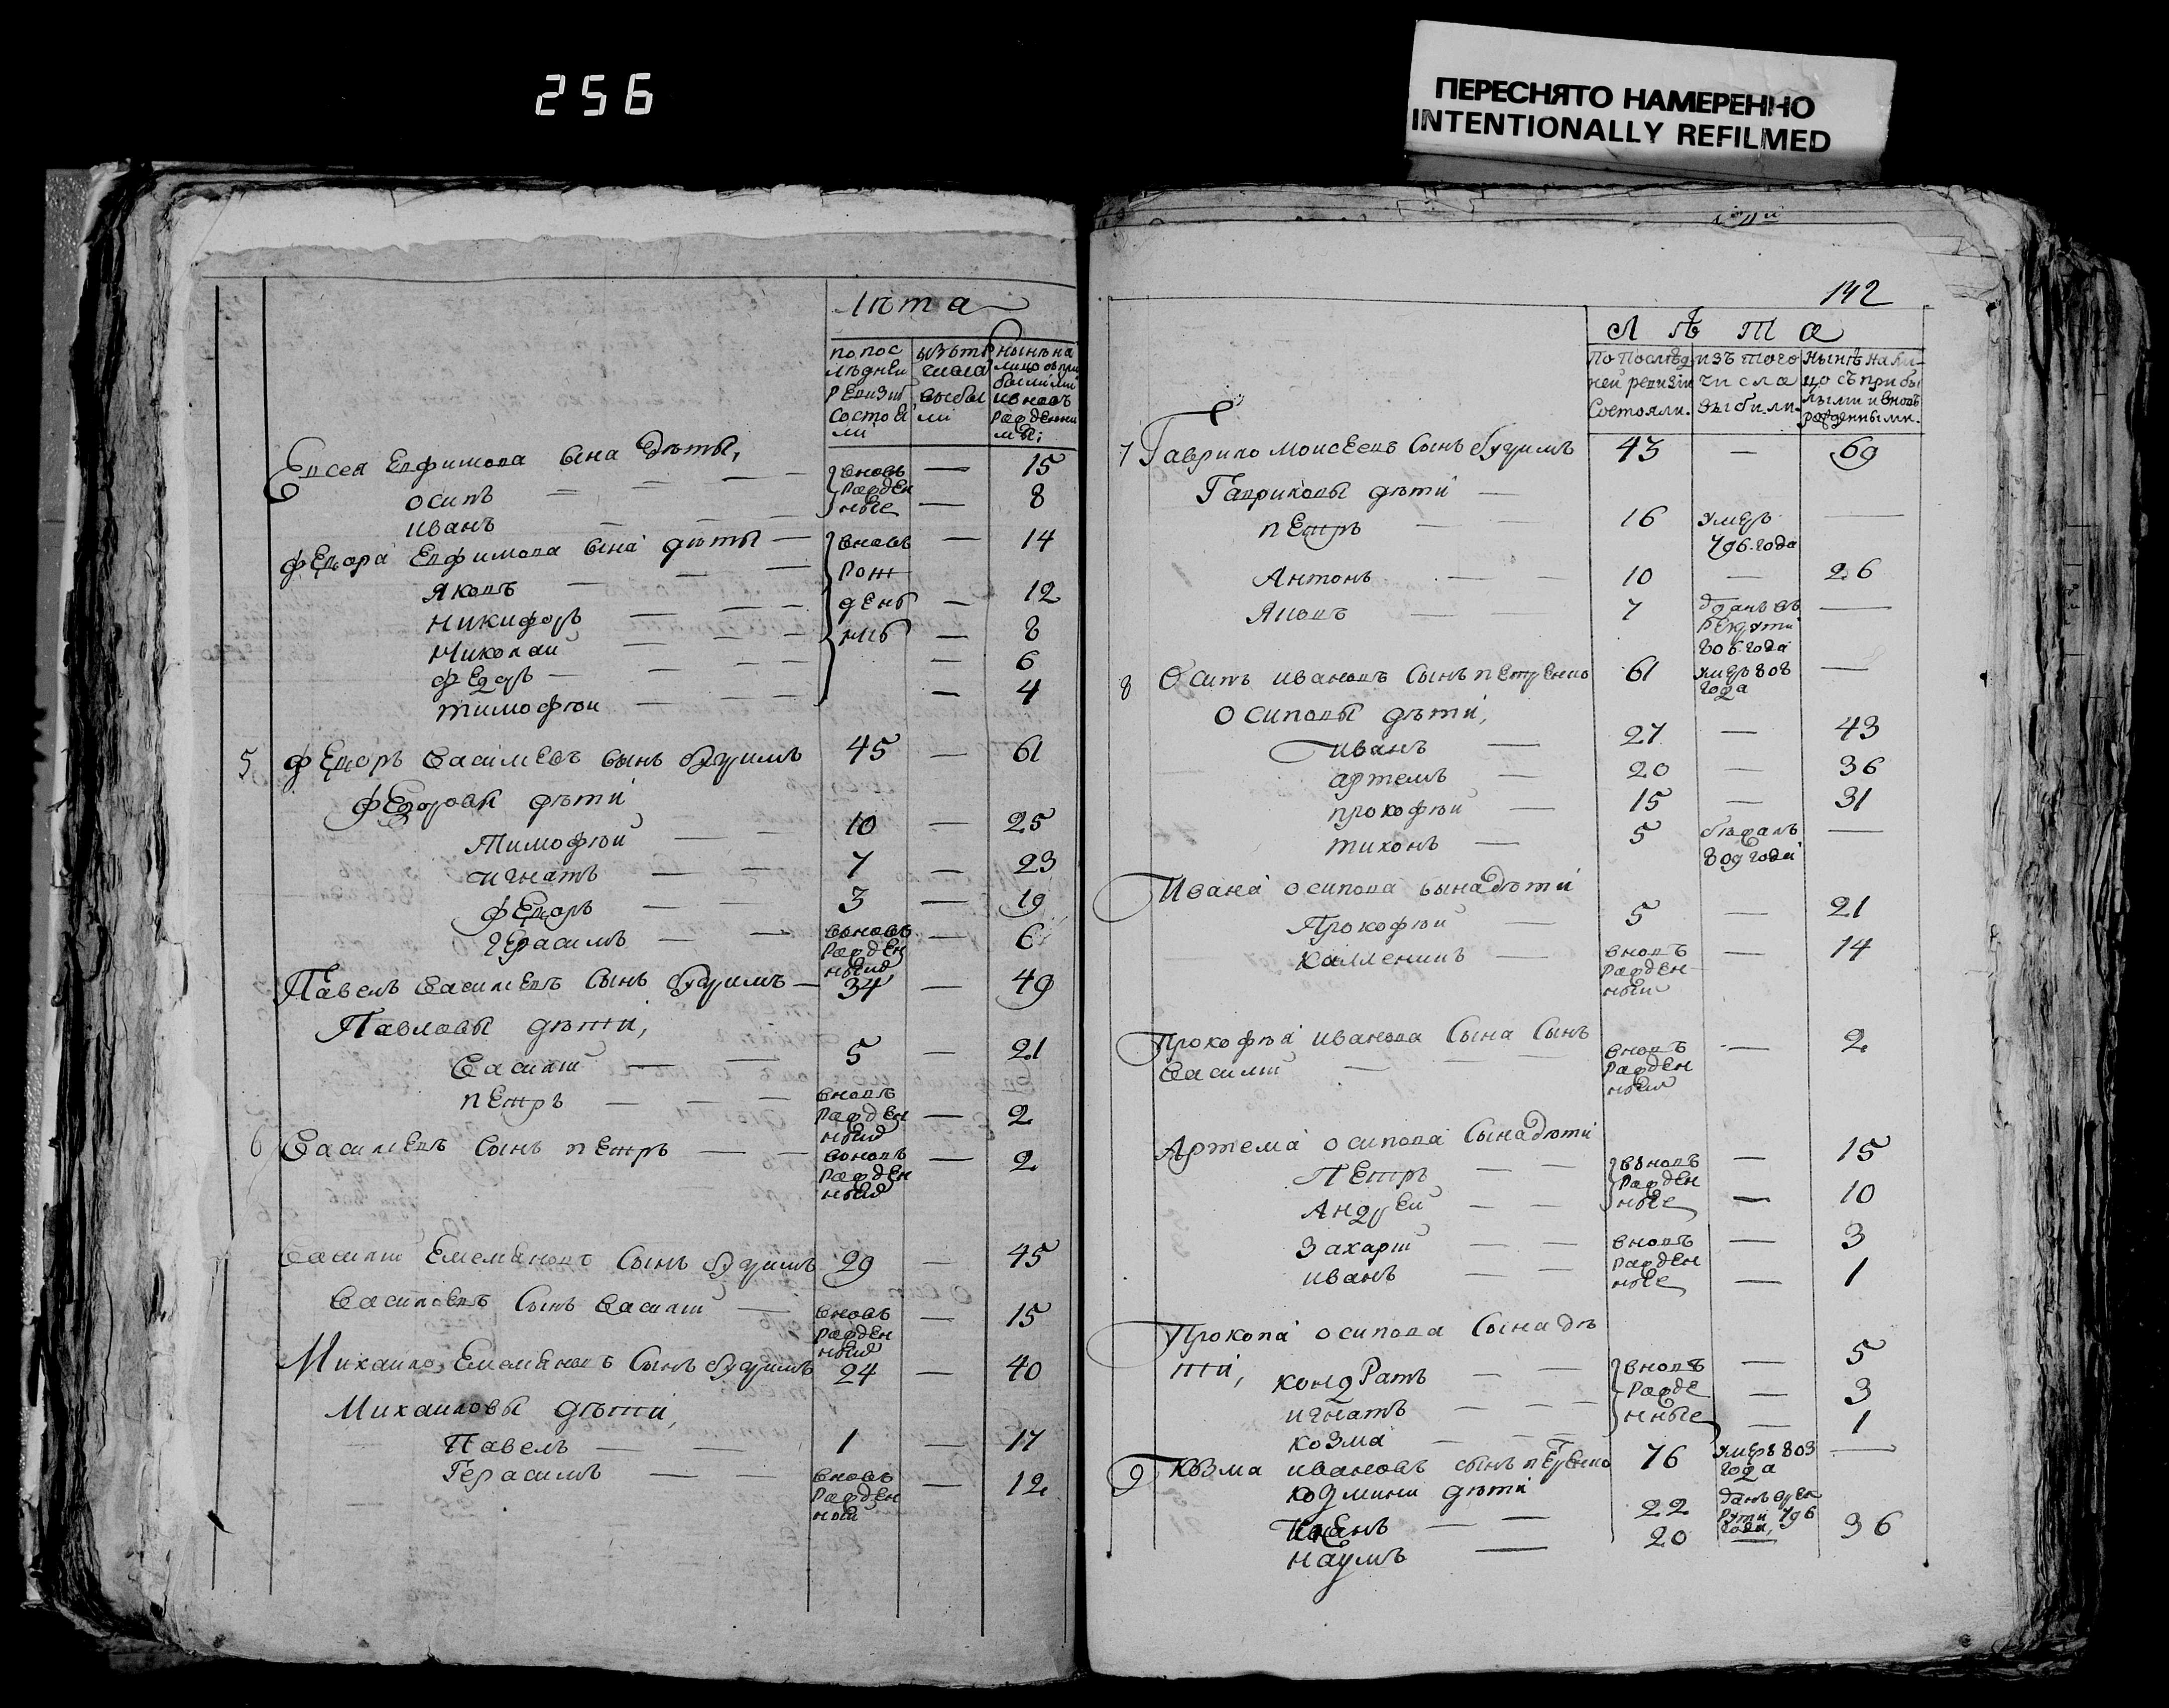 256
ПЕРЕСНЯТО НАМЕРЕННО
INTENTIONALLY REFILMED
лѣта
по пос лѣдней ревизіи состоя ли
изъ того числа выбы ли
нынѣ на лицо съ при былыми и вновь рожденны ми
Евсея Евфимова сына дѣты,
осипъ — вновь рожден ные — 15
иванъ — 8
Федора Евфимова сына дѣты
Яковъ — вновь рож ден ныя — 14
Никифоръ — 12
Николай — 8
Федоръ — 6
тимофѣй — 4
5 Федоръ Василиевъ сынъ 45 — 61
Федоровы дѣти
Тимофѣй — 10 — 25
игнатъ — 7 — 23
Федоръ — 3 — 19
герасимъ — вновь рожден ный — 6
Павелъ Василиевъ сынъ 34 — 49
Павловы дѣти,
Василий — 5 — 21
петръ — вновь рожден ный — 2
6 Василиевъ сынъ петръ — вновь рожден ный — 2
Василий Емельяновъ сынъ 29 — 45
Василиевъ сынъ Василий — вновь рожден ный — 15
Михайло Емельяновъ сынъ 24 — 40
Михайловы дѣти,
Павелъ — 1 — 17
Герасимъ — вновь рожден ный — 12
142
Лѣта
По послѣд ней ревизіи Состояли.
изъ того числа выбыли.
Нынѣ на ли цо съ прибы лыми и вновь рожденными.
7 Гаврило Моисеевъ сынъ 43 — 69
Гавриловы дѣти —
петръ — 16 умеръ 796. года —
Антонъ — 10 — 26
Яковъ — 7 отданъ въ рекруты 806. года —
8 Осипъ ивановъ сынъ петренко 61 умеръ 808 года —
Осиповы дѣти,
иванъ — 27 — 43
артемъ — 20 — 36
прокофѣй — 15 — 31
тихонъ — 5 бѣжалъ 809 года —
Ивана осипова сына дѣти
Прокофѣй — 5 — 21
вновь рожден ный — 14
Прокофѣя иванова сына сынъ
Василий — вновь рожден ный — 2
Артема осипова сына дѣти
Петръ — вновь рожден ные — 15
Андрей — 10
Захарий — вновь рожден ные — 3
иванъ — 1
Прокопа осипова сына дѣ
ти, кондратъ — вновь рожде нные — 5
игнатъ — 3
козма — 1
9 Козма ивановъ сынъ петренко 76 умеръ 803 года —
козмини дѣти
иванъ — 22 данъ в рек руты 796 года,
наумъ — 20 — 36